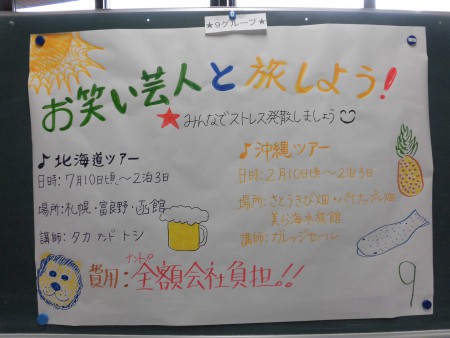 ★9グループ★
お笑い芸人と旅しよう!
★みんなでストレス発散しましょう
♪北海道ツアー
日時:7月10日頃〜2泊3日
場所:札幌・富良野・函館
講師:タカアンドトシ
♪沖縄ツアー
日時:2月10日頃〜2泊3日
場所:さとうきび畑・パイナップル畑
美ら海水族館
講師:ガレッジセール
ナント
費用:全額会社負担!!
9